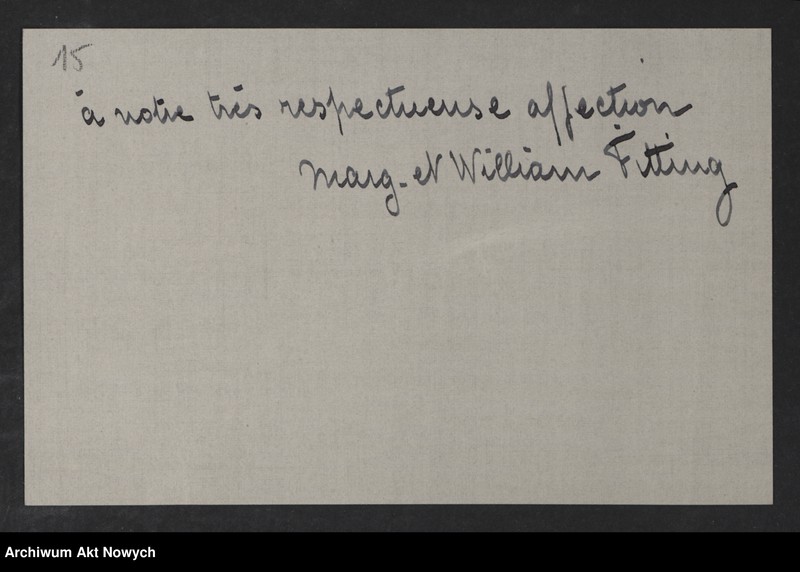 15
à notre très respectueuse affection
Marg. et William Fitting
Archiwum Akt Nowych